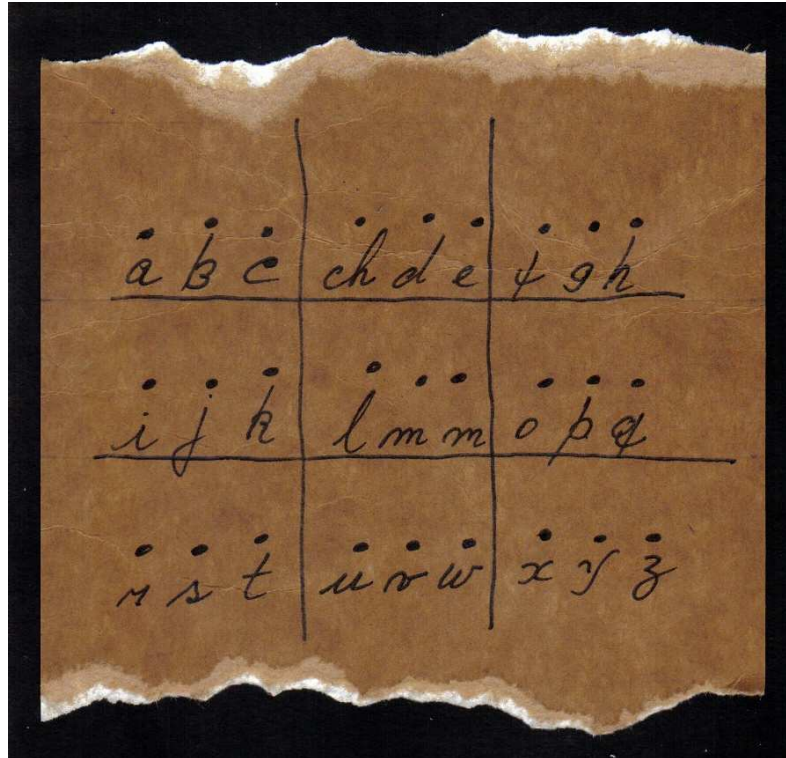 a b c ch d e f g h
i j k l m m o p q
r s t u v w x y z